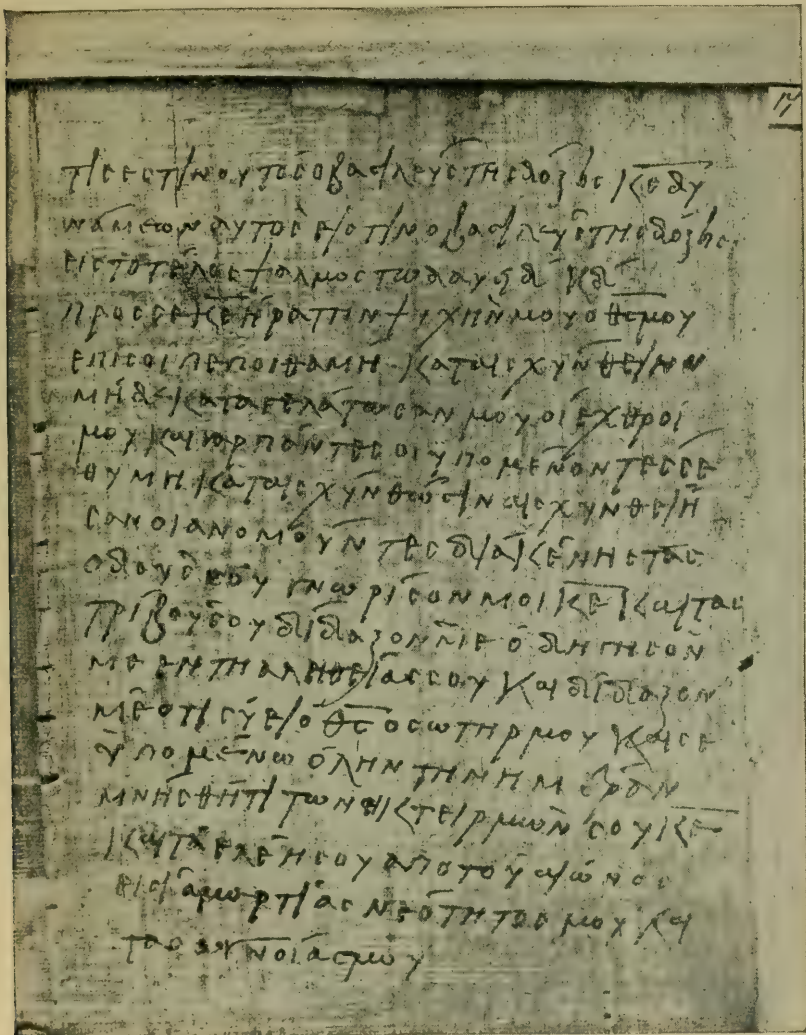 τις εστιν ουτος ο βασιλευς της δοξης κς δυ
ναμεων αυτος εστιν ο βασιλευς της δοξης
εις το τελος ψαλμος τω δαυιδ κδ
προς σε κε ηρα την ψιχην μου ο θς μου
επι σοι πεποιθα μη καταισχυνθειην
μηδε καταγελατωσαν μου οι εχθροι
μου και γαρ παντες οι υπομενοντες σε
ου μη καταισχυνθωσιν αισχυνθειη
σαν οι ανομουντες διακενης τας
οδους σου γνωρισον μοι κε και τας
τριβους σου διδαξον με οδηγησον
με εν τη αληθεια σου και διδαξον
με οτι συ ει ο θς ο σωτηρ μου και σε
υπομενω ολην την ημεραν
μνησθητι των οικτειρμων σου κε
και τα ελεη σου απο του αιωνος
εισι αμαρτιας νεοτητος μου και
τας αγνοιας μου